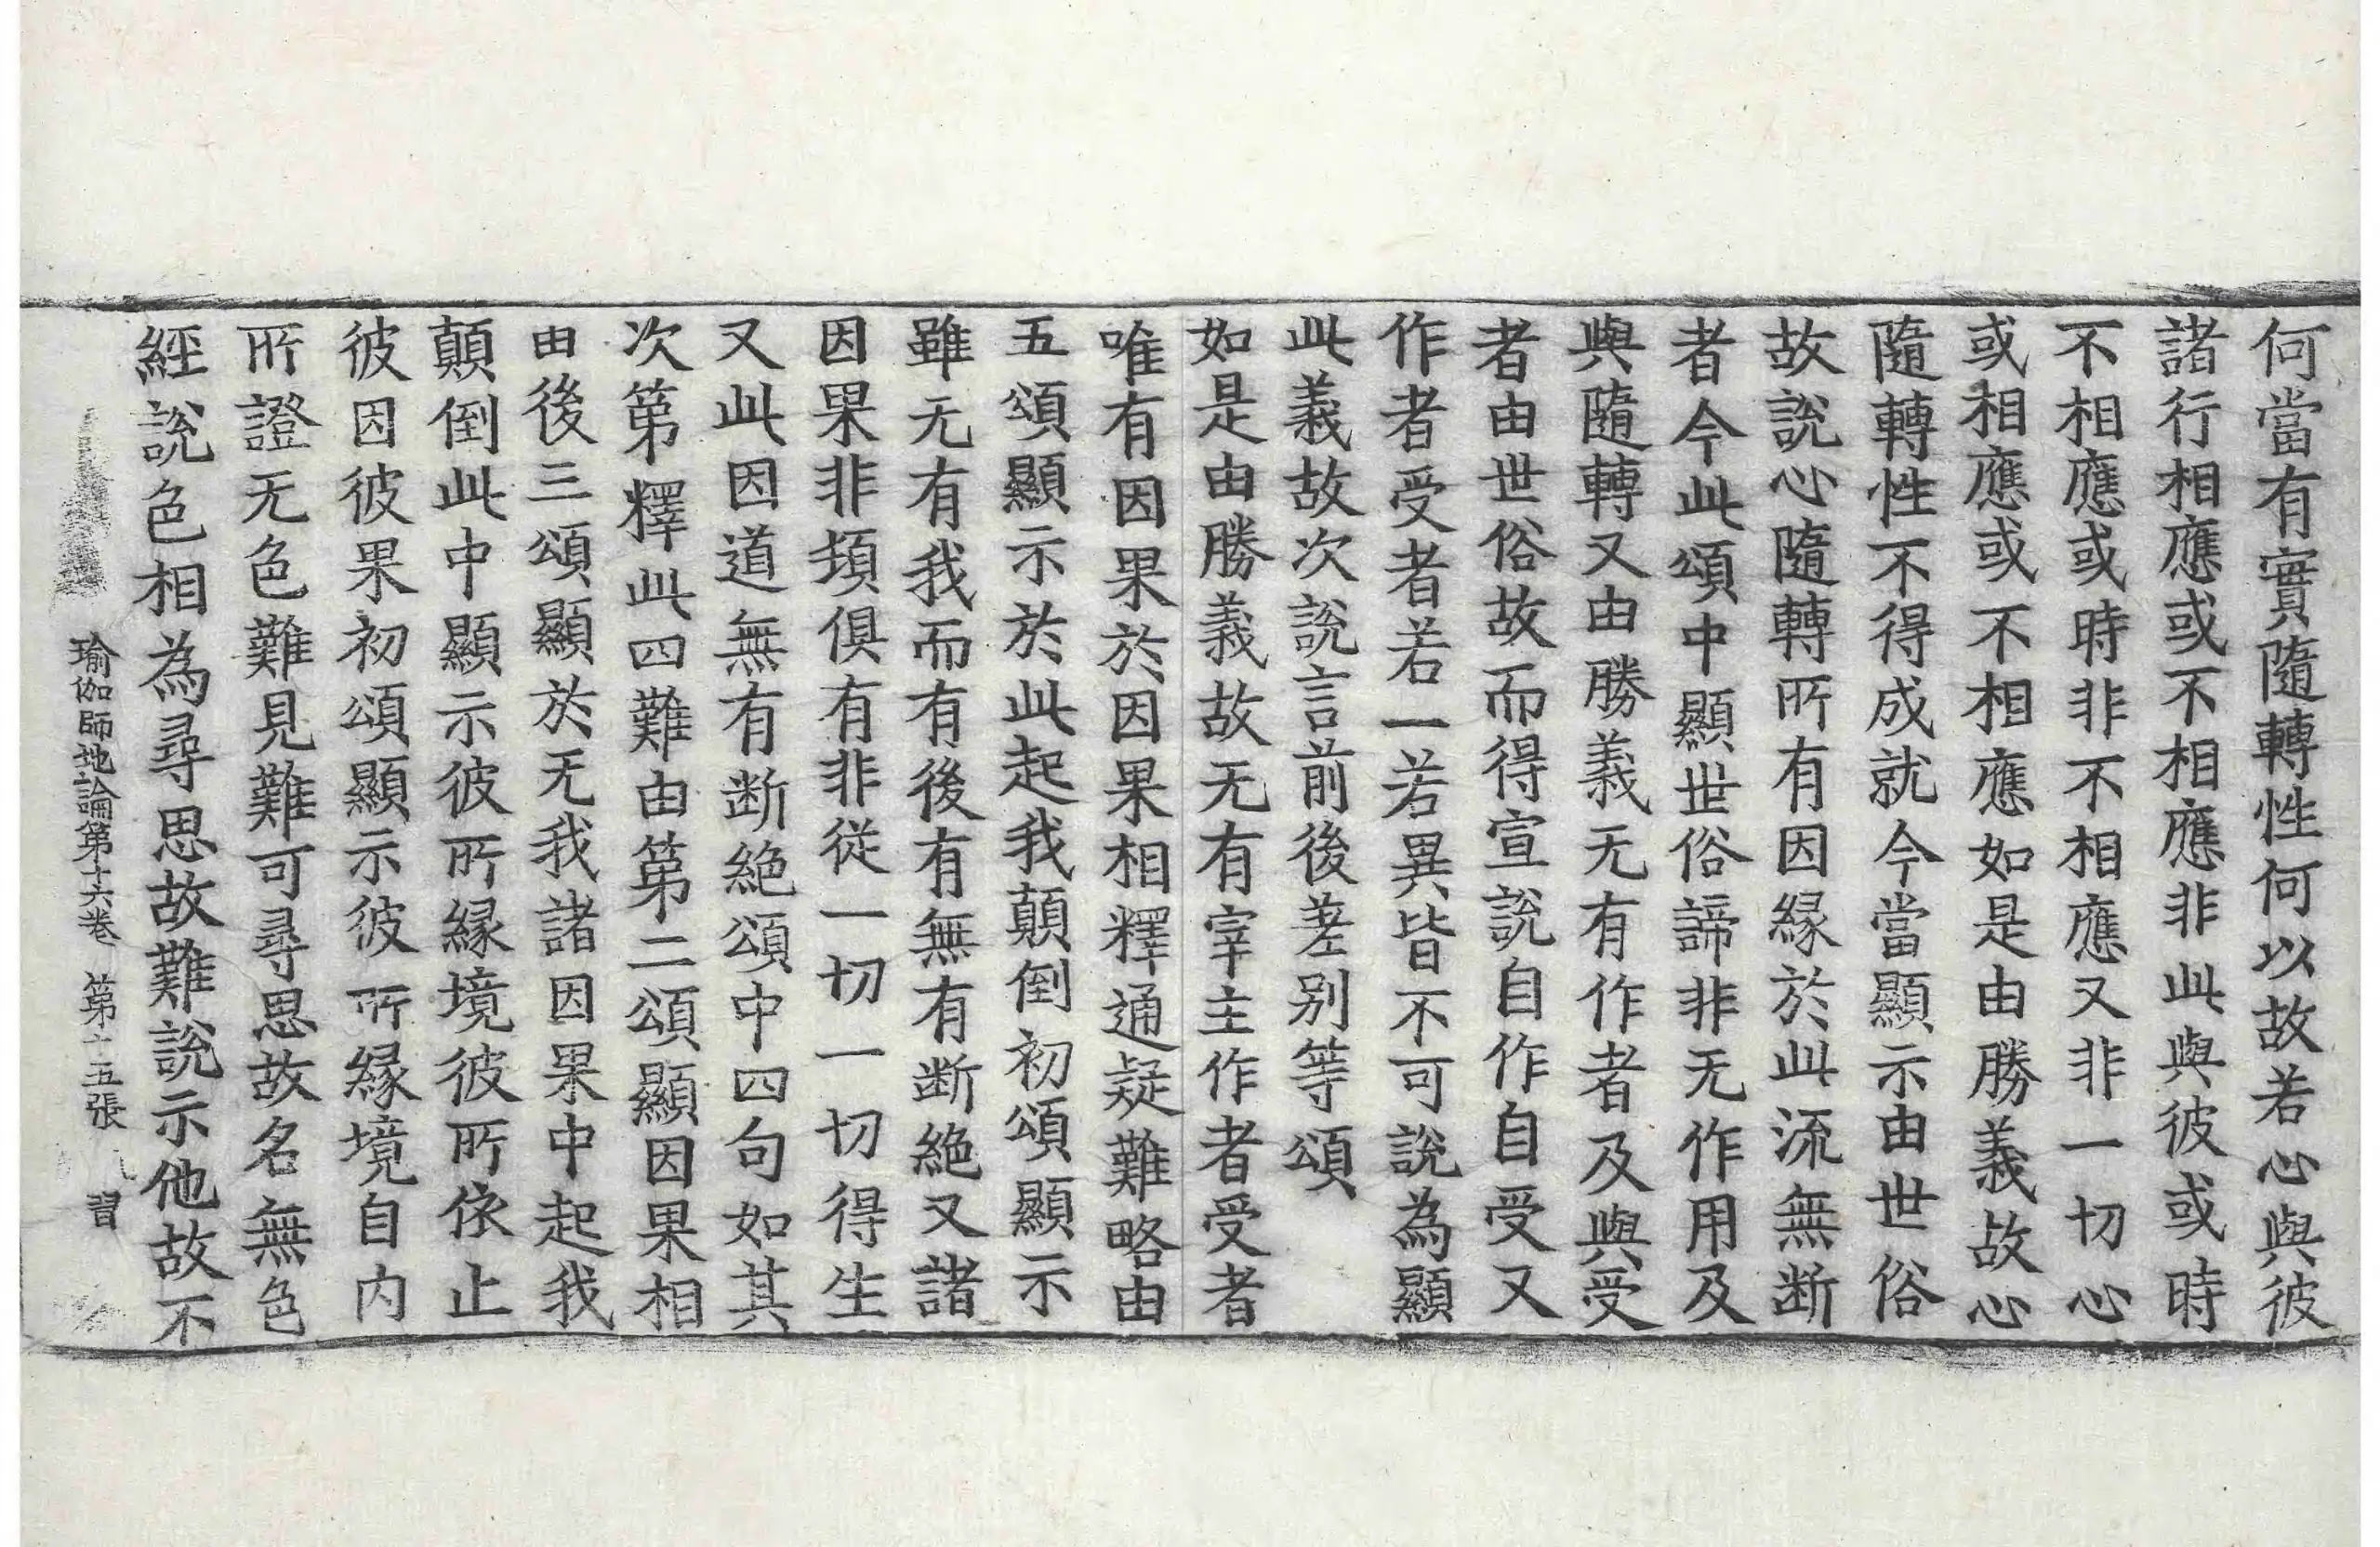 何當有實隨轉性何以故若心與彼
諸行相應或不相應非此與彼或時
不相應或時非不相應又非一切心
或相應或不相應如是由勝義故心
隨轉性不得成就今當顯示由世俗
故說心隨轉所有因緣於此流無断
者今此頌中顯世俗諦非无作用及
與隨轉又由勝義无有作者及與受
者由世俗故而得宣說自作自受又
作者受者若一若異皆不可說為顯
此義故次說言前後差别等頌
如是由勝義故无有宰主作者受者
唯有因果於因果相釋通疑難略由
五頌顯示於此起我顛倒初頌顯示
雖无有我而有後有無有断絶又諸
因果非頓俱有非從一切一切得生
又此因道無有断絶頌中四句如其
次第釋此四難由第二頌顯因果相
由後三頌顯於无我諸因果中起我
顛倒此中顯示彼所緣境彼所依止
彼因彼果初頌顯示彼所緣境自内
所證无色難見難可尋思故名無色
經說色相為尋思故難說示他故不
瑜伽師地論第十六卷 第十五張 習